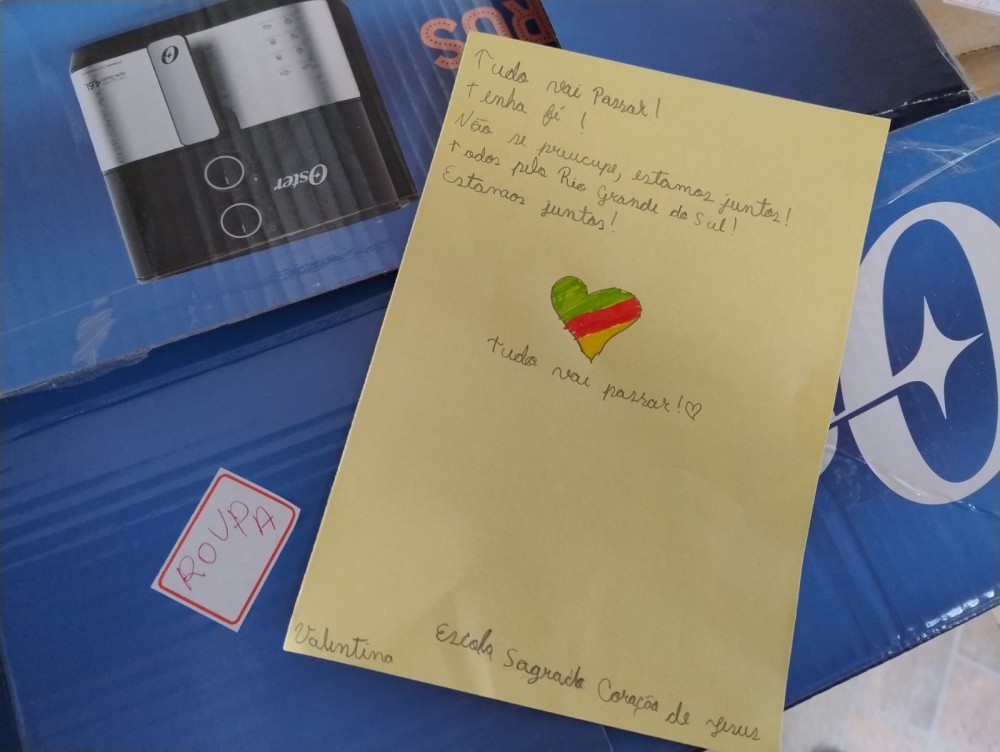 Tudo vai Passar!
tenha fé!
Não se preucupe, estamos juntos!
todos pelo Rio Grande do Sul!
Estamos juntos!
tudo vai passar!♡
Valentina
Escola Sagrado Coração de Jesus
ROUPA
Oster
4,6L